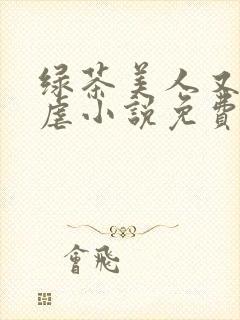 绿茶美人又
虐小説免費
會飛